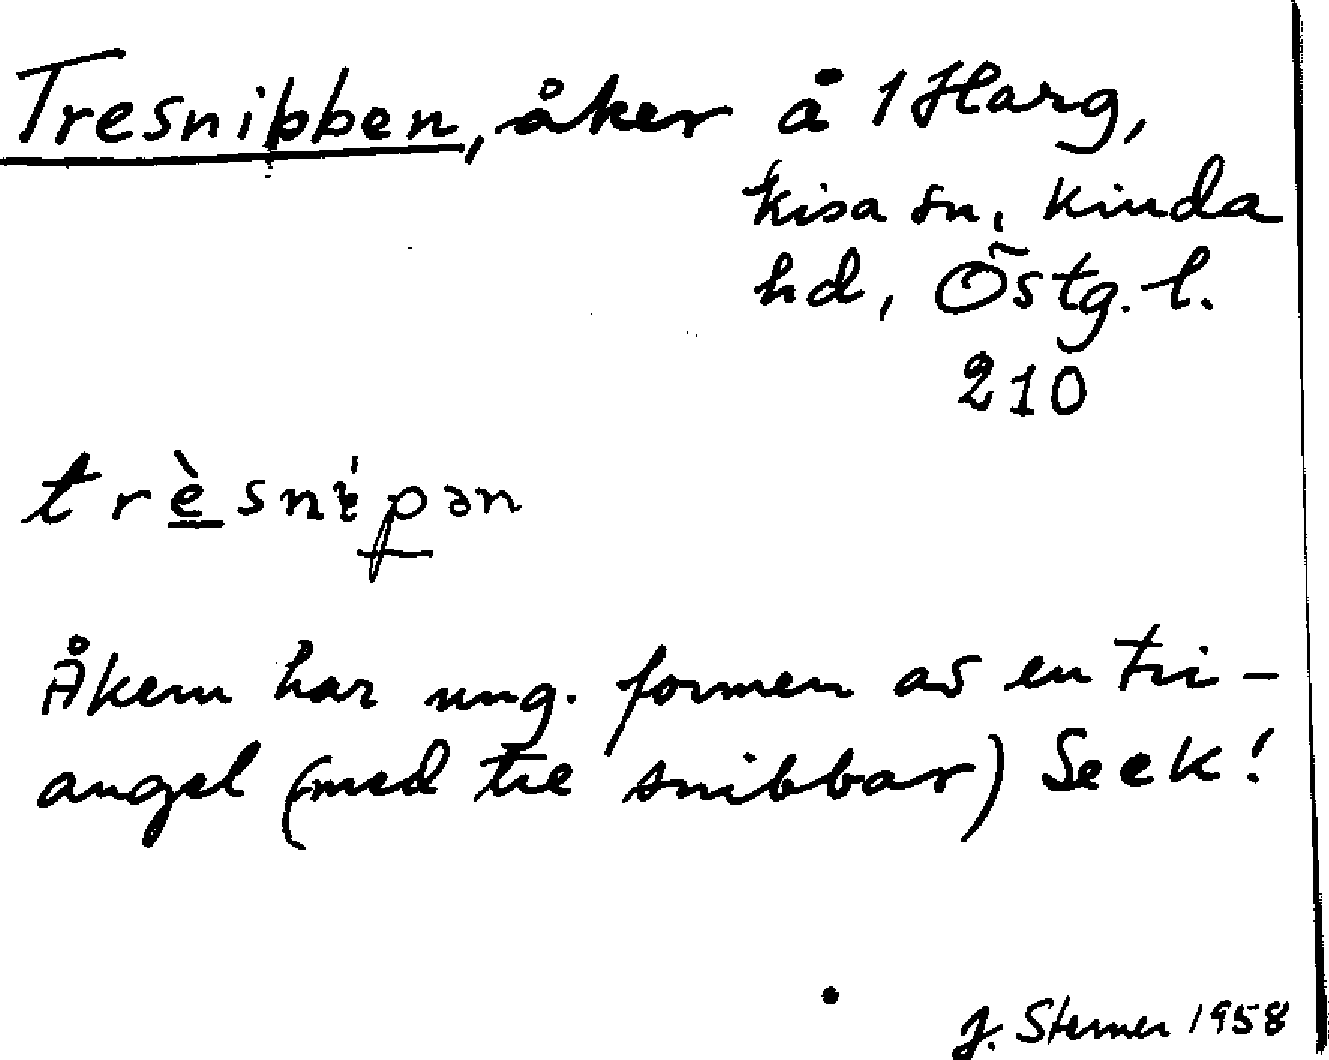 Tresnibben, åker å 1 Harg,
Kisa sn, Kinda
hd, Östg. l.
210
trèsnìpən
Åkern har ung. formen av en tri-
angel (med tre snibbar) Se ek!
J. Sterner 1958